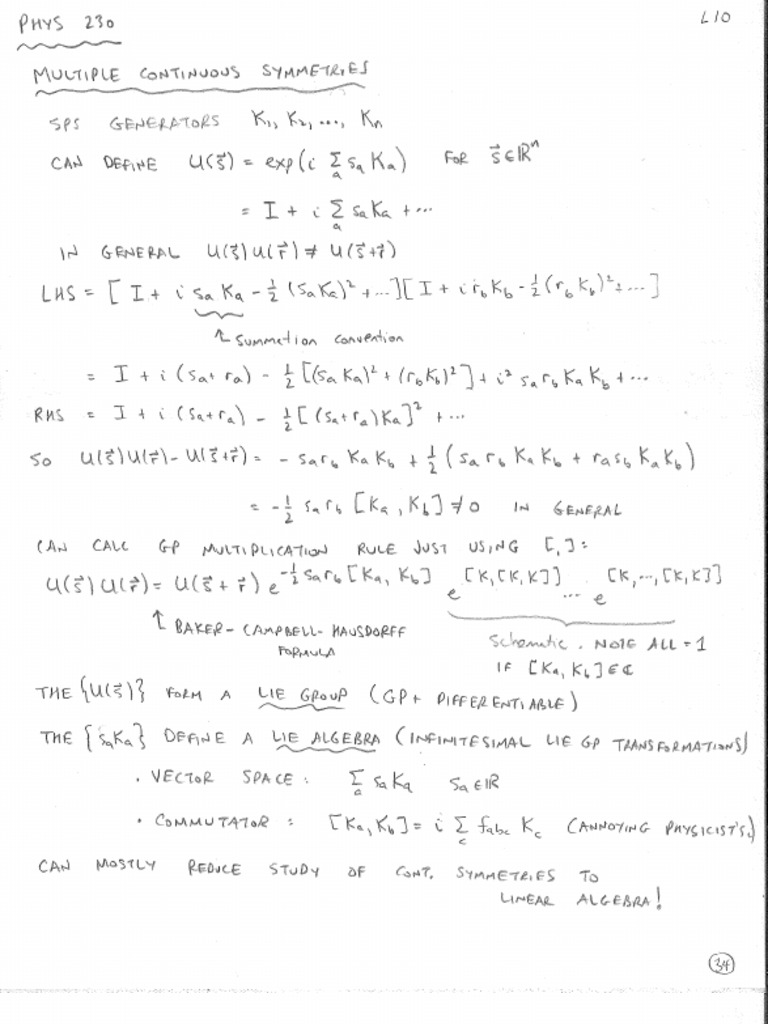 PHYS 230
L10
MULTIPLE CONTINUOUS SYMMETRIES
SPS GENERATORS K₁, K₂, ..., Kₙ
CAN DEFINE U(s⃗) = exp(i Σₐ sₐKₐ) FOR s⃗∈ℝⁿ
= I + i Σₐ sₐKₐ + ...
IN GENERAL U(s⃗)U(r⃗) ≠ U(s⃗+r⃗)
LHS = [I + i sₐKₐ - ½(sₐKₐ)² + ...][I + i r_bK_b - ½(r_bK_b)² + ...]
↑ Summation convention
= I + i(sₐ+rₐ) - ½[(sₐKₐ)² + (r_bK_b)²] + i² sₐr_bKₐK_b + ...
RHS = I + i(sₐ+rₐ) - ½[(sₐ+rₐ)Kₐ]² + ...
SO U(s⃗)U(r⃗) - U(s⃗+r⃗) = - sₐr_b KₐK_b + ½(sₐr_b KₐK_b + rₐs_b KₐK_b)
= -½ sₐr_b [Kₐ, K_b] ≠ 0 IN GENERAL
CAN CALC GP MULTIPLICATION RULE JUST USING [,]:
U(s⃗)U(r⃗) = U(s⃗+r⃗) e^{-½sₐr_b[Kₐ, K_b]} e^{[K,[K,K]]} ... e^{[K,...,[K,K]]}
↑ BAKER-CAMPBELL-HAUSDORFF
FORMULA
Schematic. NOTE ALL = 1
IF [Kₐ, K_b] ∈ ℂ
THE {U(s⃗)} FORM A LIE GROUP (GP + DIFFERENTIABLE)
THE {sₐKₐ} DEFINE A LIE ALGEBRA (INFINITESIMAL LIE GP TRANSFORMATIONS)
· VECTOR SPACE: Σₐ sₐKₐ sₐ∈ℝ
· COMMUTATOR: [Kₐ, K_b] = i Σ_c f_abc K_c (ANNOYING PHYSICIST'S i)
CAN MOSTLY REDUCE STUDY OF CONT. SYMMETRIES TO
LINEAR ALGEBRA!
34